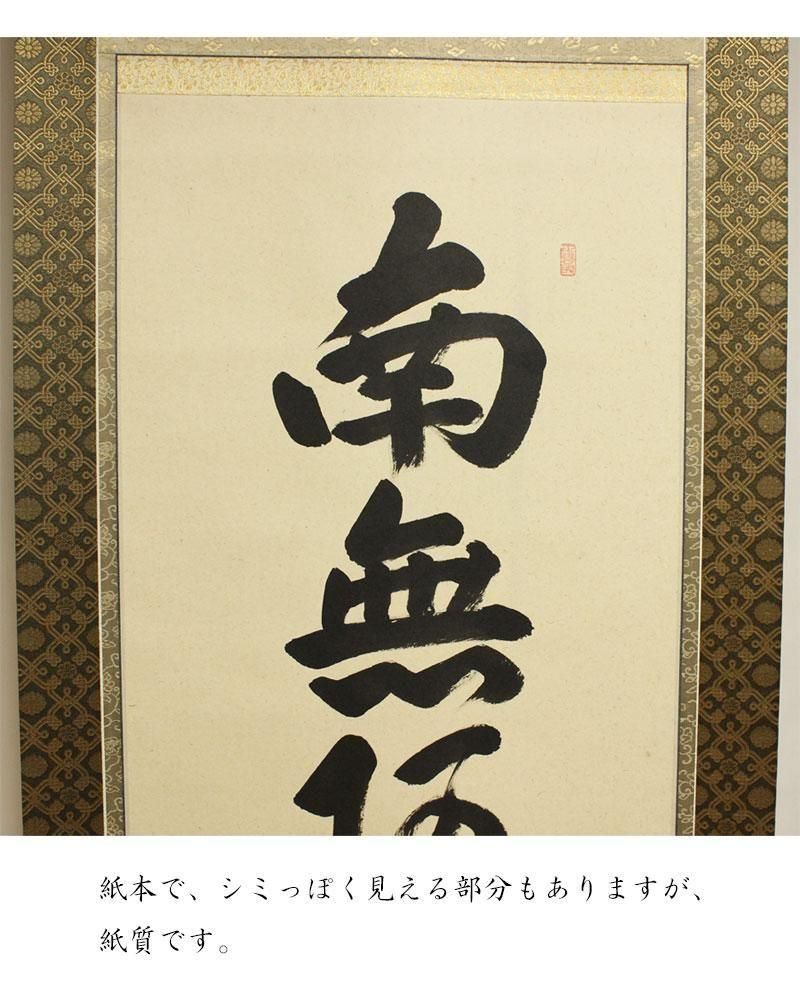 南無阿
紙本で、シミっぽく見える部分もありますが、
紙質です。